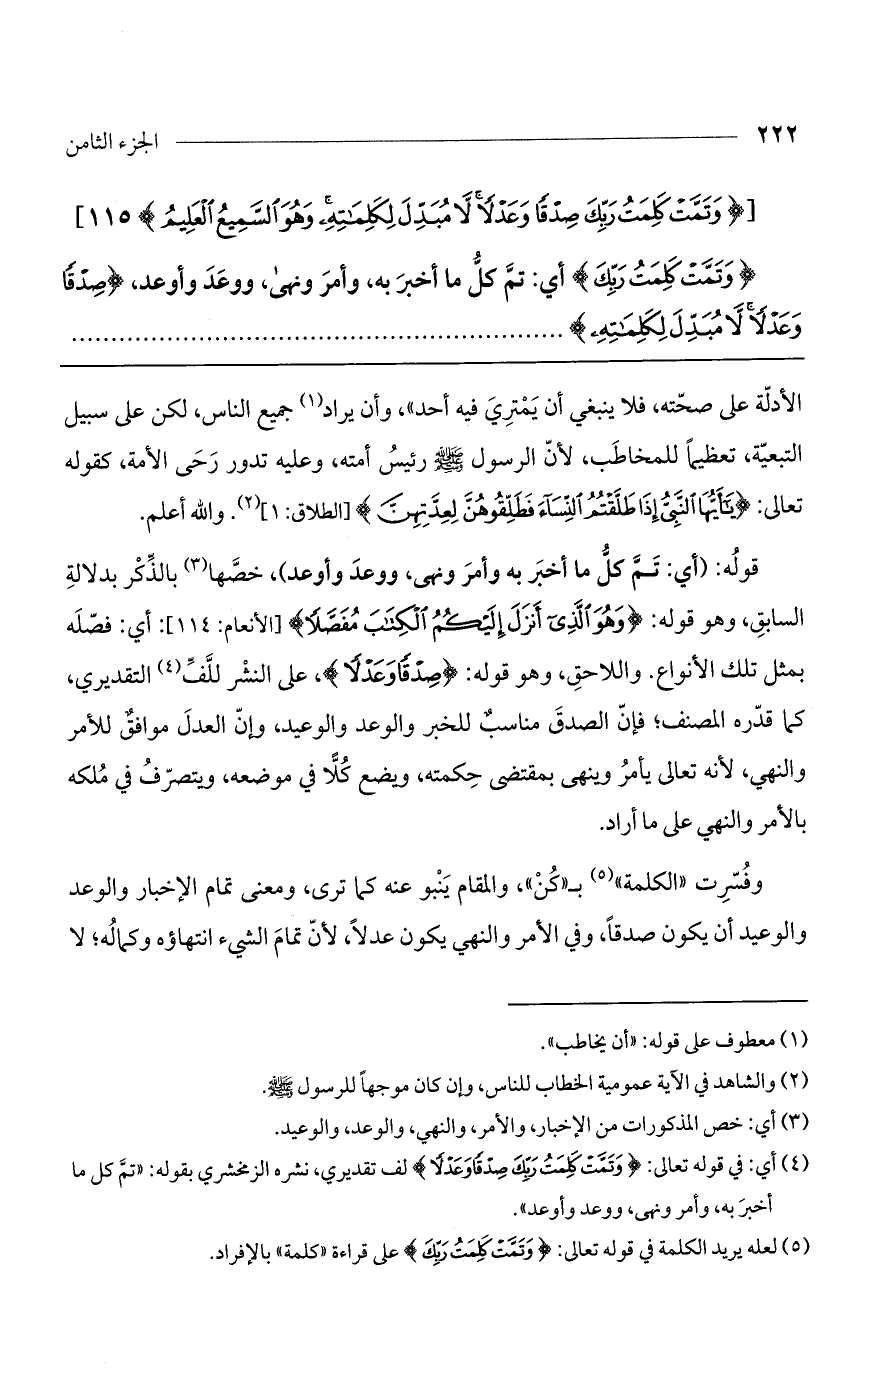 ٢٢٢ الجزء الثامن
[﴿ وَتَمَّتْ كَلِمَتُ رَبِّكَ صِدْقًا وَعَدْلًا ۚ لَّا مُبَدِّلَ لِكَلِمَـٰتِهِۦ ۚ وَهُوَ ٱلسَّمِيعُ ٱلْعَلِيمُ ﴾ ١١٥]
﴿ وَتَمَّتْ كَلِمَتُ رَبِّكَ ﴾ أي: تمَّ كلُّ ما أخبرَ به، وأمرَ ونهىٰ، ووعَدَ وأوعد، ﴿صِدْقًا
وَعَدْلًا ۚ لَّا مُبَدِّلَ لِكَلِمَـٰتِهِۦ ﴾ ................................................................
الأدلّة على صحّته، فلا ينبغي أن يَمْتريَ فيه أحد»، وأن يراد(١) جميع الناس، لكن على سبيل
التبعيّة، تعظيماً للمخاطَب، لأنّ الرسول ﷺ رئيسُ أمته، وعليه تدور رَحَى الأمة، كقوله
تعالى: ﴿يَـٰٓأَيُّهَا ٱلنَّبِىُّ إِذَا طَلَّقْتُمُ ٱلنِّسَآءَ فَطَلِّقُوهُنَّ لِعِدَّتِهِنَّ ﴾ [الطلاق: ١](٢). والله أعلم.
قولُه: (أي: تَـمَّ كلُّ ما أخبَر به وأمرَ ونهى، ووعدَ وأوعد)، خصَّها(٣) بالذِّكْر بدلالةِ
السابقِ، وهو قوله: ﴿وَهُوَ ٱلَّذِىٓ أَنزَلَ إِلَيْكُمُ ٱلْكِتَـٰبَ مُفَصَّلًا﴾ [الأنعام: ١١٤]: أي: فصّلَه
بمثل تلك الأنواع. واللاحقِ، وهو قوله: ﴿صِدْقًا وَعَدْلًا ﴾، على النشْر للَّفِّ(٤) التقديري،
كما قدّره المصنف؛ فإنّ الصدقَ مناسبٌ للخبر والوعد والوعيد، وإنّ العدلَ موافقٌ للأمر
والنهي، لأنه تعالى يأمرُ وينهى بمقتضى حِكمته، ويضع كُلًّا في موضعه، ويتصرّفُ في مُلكه
بالأمر والنهي على ما أراد.
وفُسّرِت «الكلمة»(٥) بـ«كُنْ»، والمقام يَنْبو عنه كما ترى، ومعنى تمام الإخبار والوعد
والوعيد أن يكون صدقاً، وفي الأمر والنهي يكون عدلاً، لأنّ تمامَ الشيء انتهاؤه وكمالُه؛ لا
(١) معطوف على قوله: «أن يخاطب».
(٢) والشاهد في الآية عمومية الخطاب للناس، وإن كان موجهاً للرسول ﷺ.
(٣) أي: خص المذكورات من الإخبار، والأمر، والنهي، والوعد، والوعيد.
(٤) أي: في قوله تعالى: ﴿ وَتَمَّتْ كَلِمَتُ رَبِّكَ صِدْقًا وَعَدْلًا ﴾ لف تقديري، نشره الزمخشري بقوله: «تمَّ كل ما
أخبرَ به، وأمر ونهى، ووعد وأوعد».
(٥) لعله يريد الكلمة في قوله تعالى: ﴿ وَتَمَّتْ كَلِمَتُ رَبِّكَ ﴾ على قراءة «كلمة» بالإفراد.